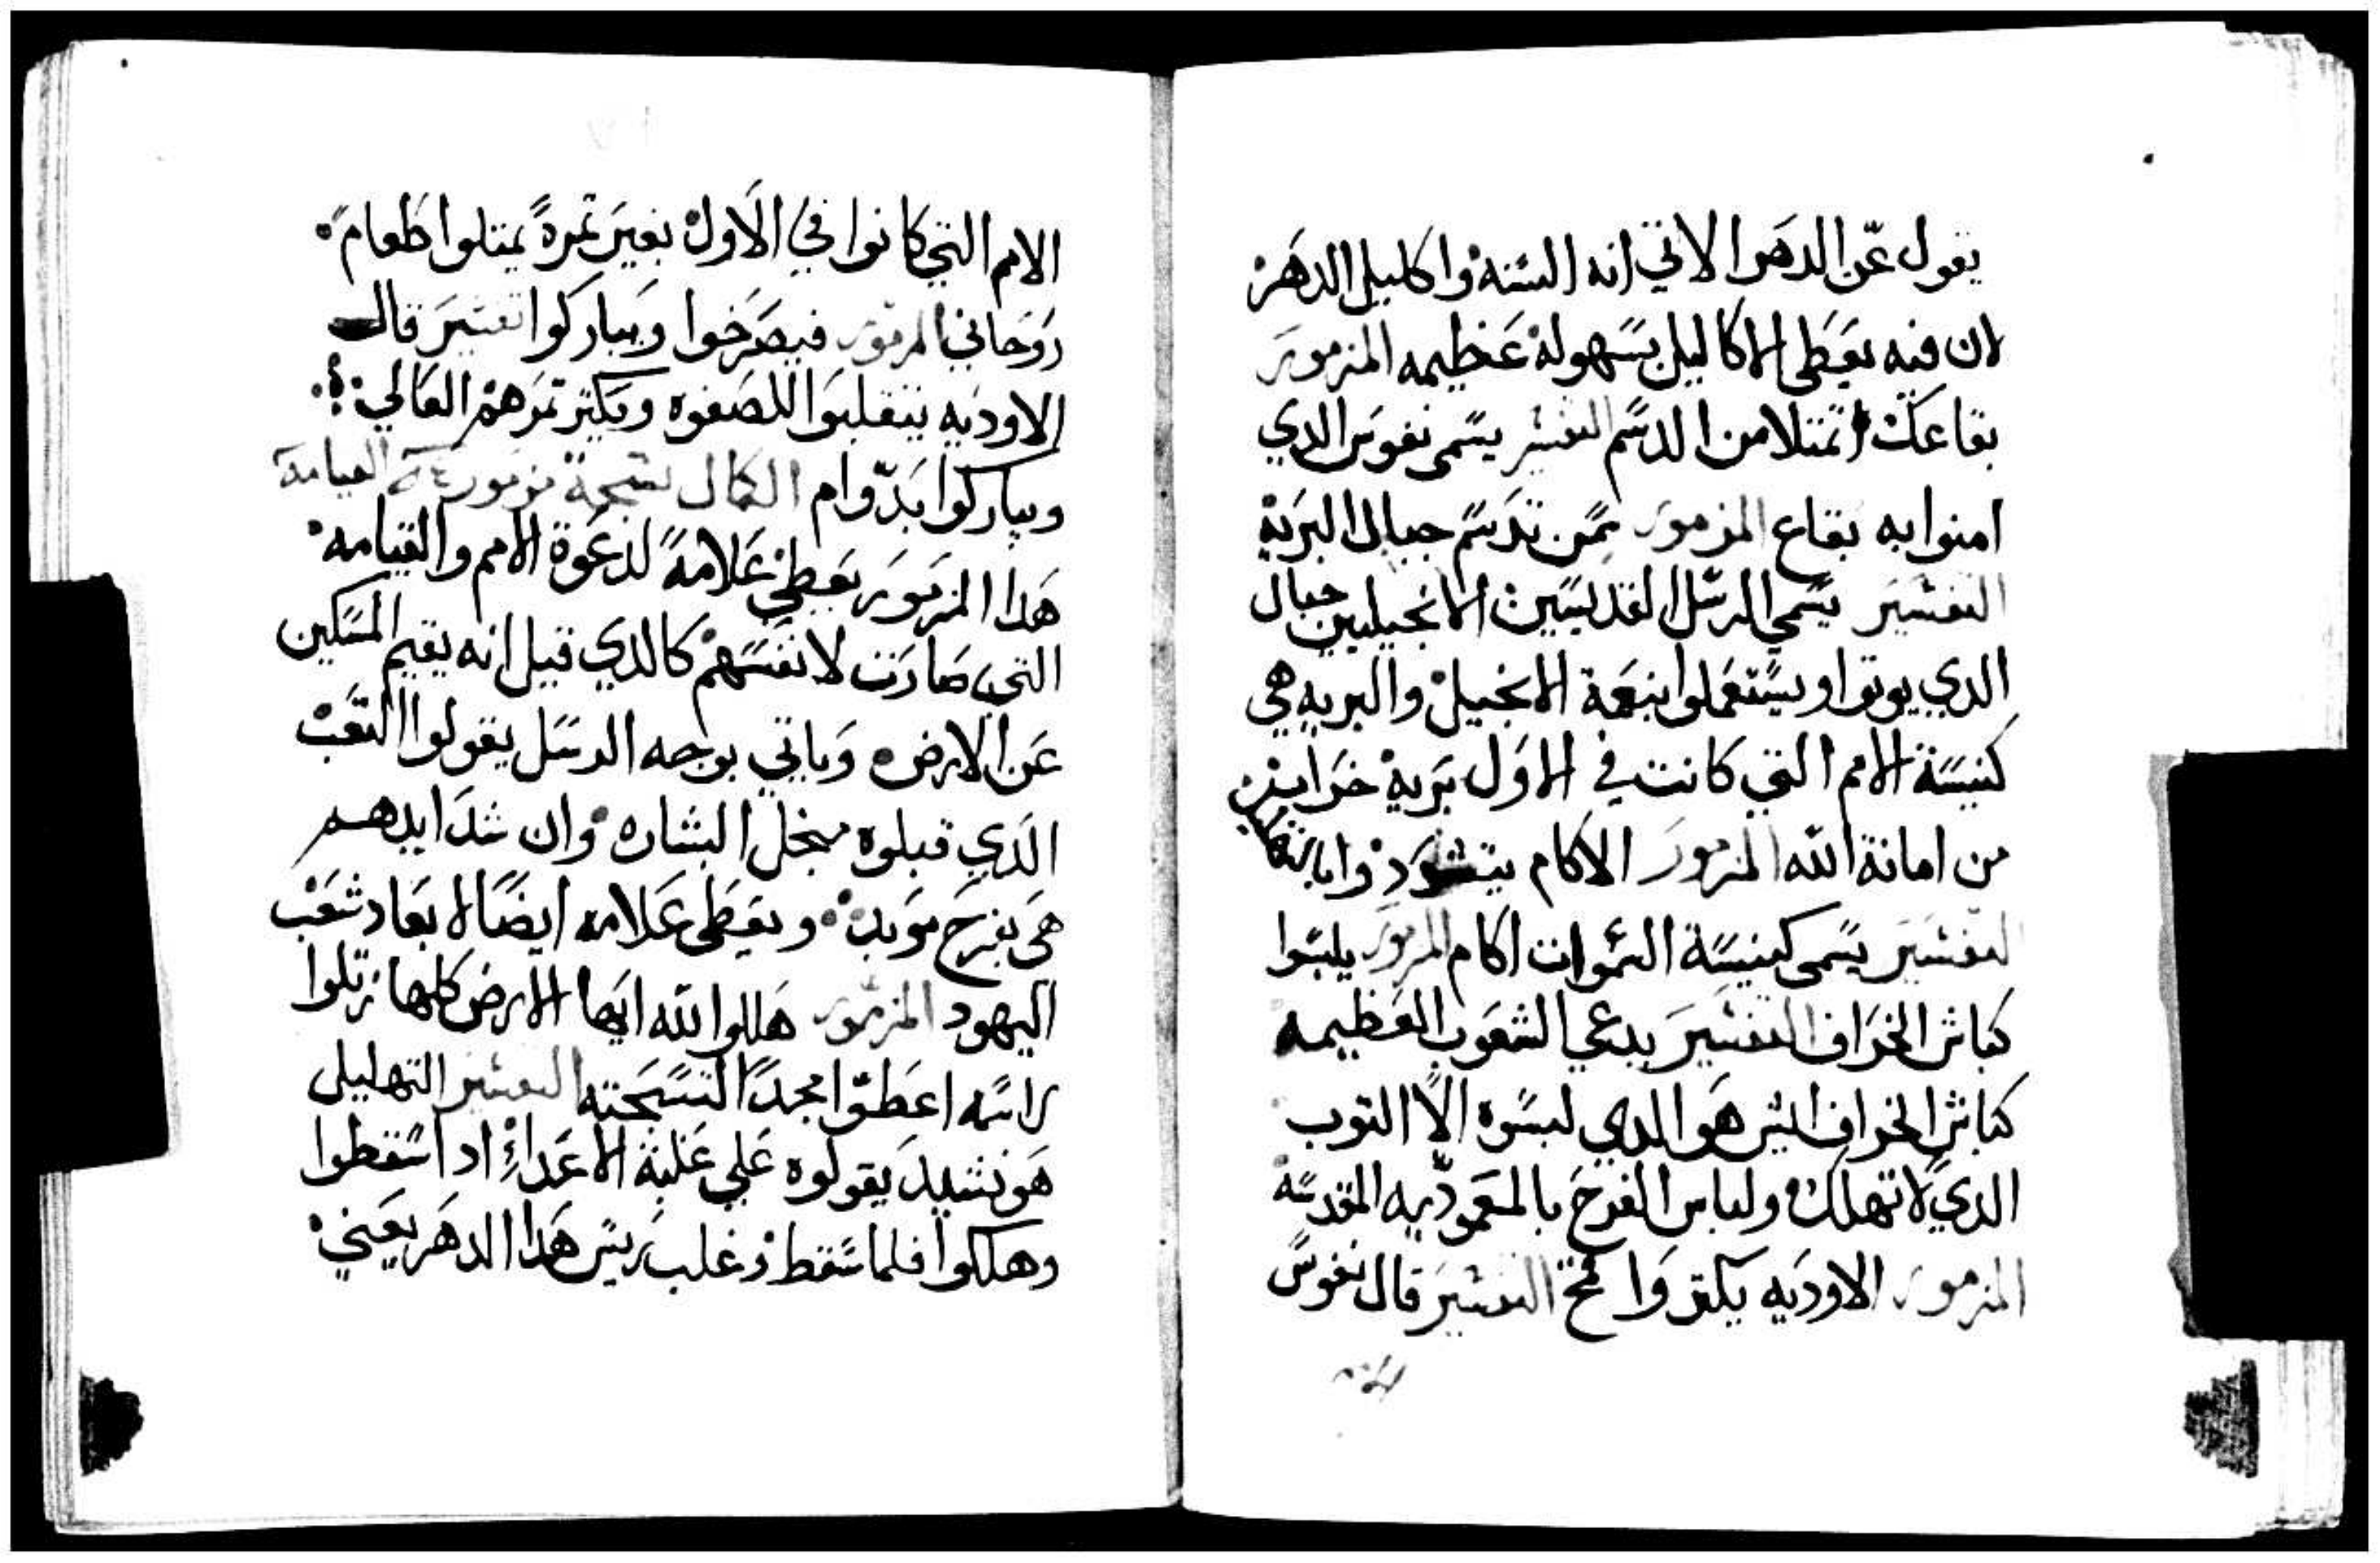 يقول عن الدهر الاتي انه السنه واكليل الدهر
لان فيه يعطي الاكاليل بسهولة عظيمه المزمور
بقاعك تمتلا من الدسم التفسير يسمي نفوس الدي
امنوا به بقاع المزمور تدسم جبال البرية
التفسير يسمي الرسل القديسين الانجيليين جبال
الدي يوتوا ويستعملوا بنعمة الانجيل والبريه هي
كنيسة الامم التي كانت في الاول برية خراب
من امانة الله المزمور الاكام
التفسير يسمي كنيسة السموات اكام المزمور يلبسوا
كباش الخراف التفسير يدعي الشعوب العظيمه
كباش الخراف ليس هو الدي لبسوه الا التوب
الدي لا تهلك ولباس الفرح بالمعموديه المقدسة
المزمور الاوديه يكتر وا قمح التفسير قال نفوس
الامم التي كانوا في الاول بغير تمرة يمتلوا طعام
روحاني المزمور فيصرخوا ويباركوا تفسير قال
الاوديه ينقلبوا للصفوه ويكتر تمرهم العالي
ويباركوا بدوام الكمال تسبحة مزمور القيامة
هدا المزمور يعطي علامة لدعوة الامم والقيامه
التي صارت لانفسهم كالدي قيل انه يقيم المسكين
عن الارض وياتي بوجه الرسل يقولوا التعب
الدي قبلوه منجل البشاره وان شدايدهم
هي بفرح موبد ويعطي علامه ايضا لابعاد شعب
اليهود المزمور هللوا لله ايها الارض كلها رتلوا
لاسمه اعطوا مجدا لتسبحته التفسير التهليل
هو نشيد يقولوه علي غلبة الاعداء اد اسقطوا
وهلكوا فلما سقط وغلب ريس هدا الدهر يعني